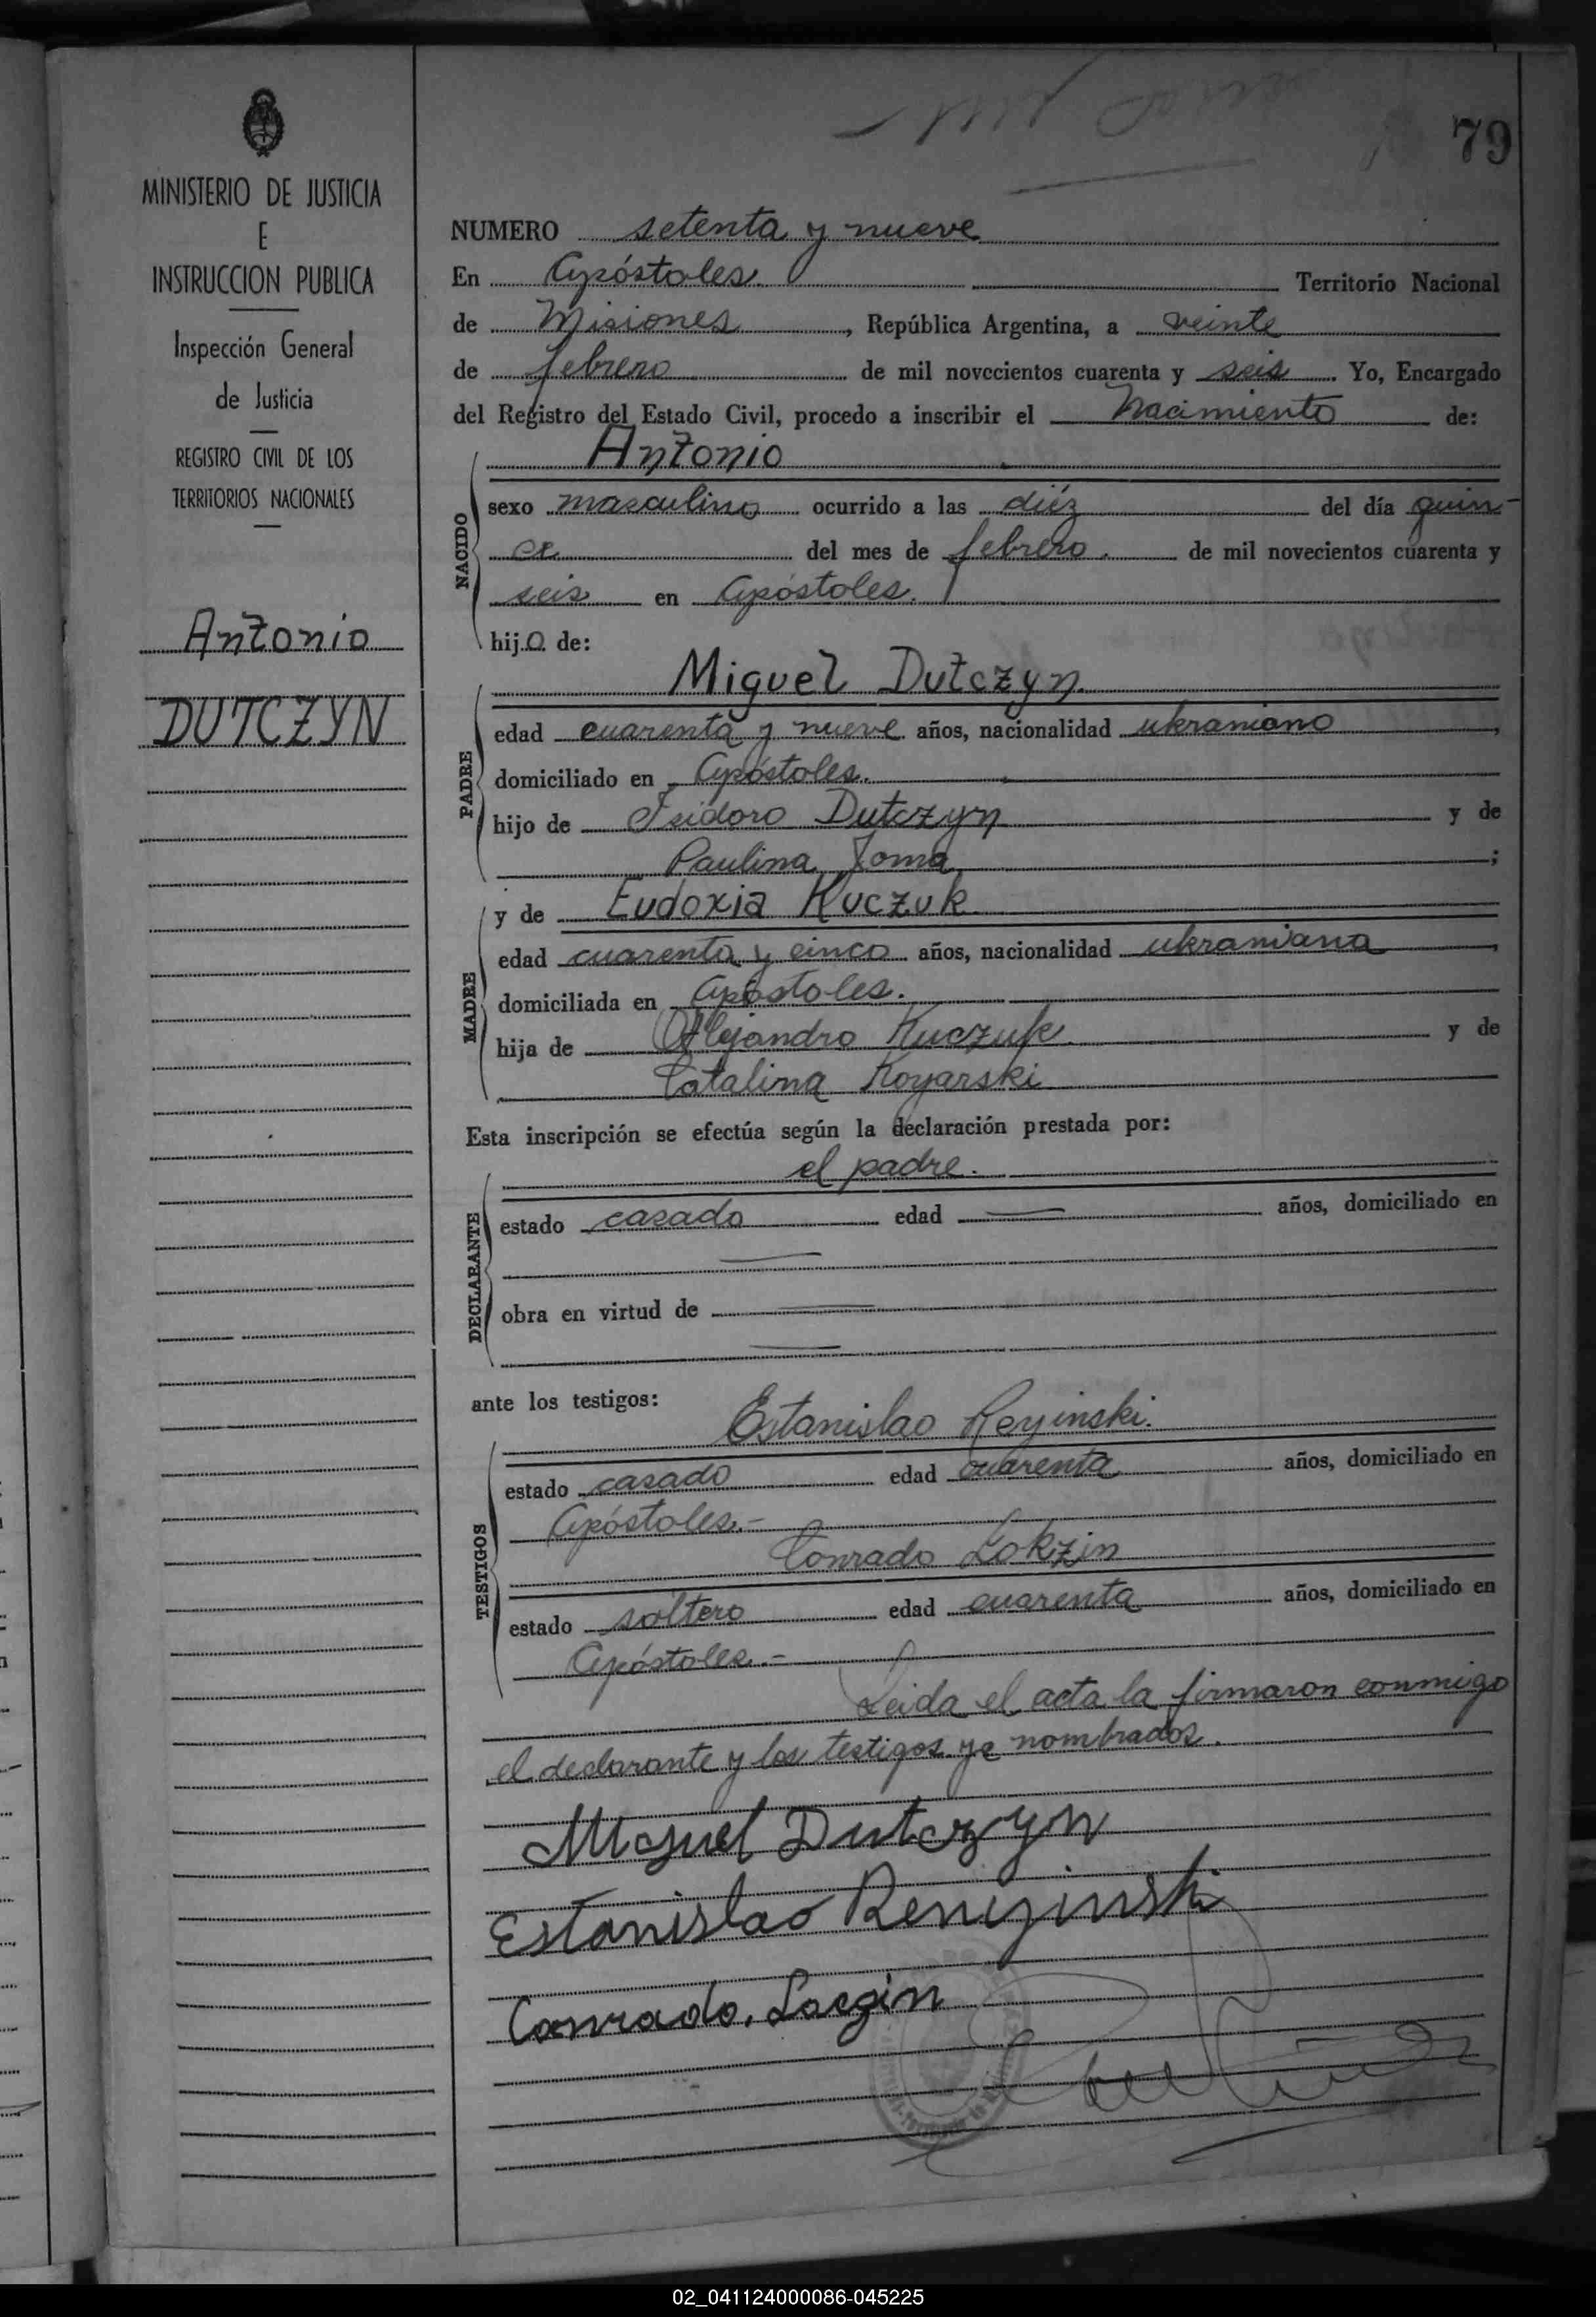 79
MINISTERIO DE JUSTICIA
E
INSTRUCCION PUBLICA
Inspección General
de Justicia
REGISTRO CIVIL DE LOS
TERRITORIOS NACIONALES
Antonio
DUTCZYN
NUMERO setenta y nueve
En Apóstoles. Territorio Nacional
de Misiones, República Argentina, a veinte
de febrero de mil novecientos cuarenta y seis. Yo, Encargado
del Registro del Estado Civil, procedo a inscribir el Nacimiento de:
NACIDO
Antonio
sexo masculino ocurrido a las diéz del día quin-
ce del mes de febrero. de mil novecientos cuarenta y
seis en Apóstoles.
hijo de:
PADRE
Miguel Dutczyn.
edad cuarenta y nueve años, nacionalidad ukraniano,
domiciliado en Apóstoles.
hijo de Isidoro Dutczyn y de
Paulina Joma;
MADRE
y de Eudoxia Kuczuk
edad cuarenta y cinco años, nacionalidad ukraniana,
domiciliada en Apóstoles.
hija de Alejandro Kuczuk. y de
Catalina Koyarski
Esta inscripción se efectúa según la declaración prestada por:
DECLARANTE
el padre.
estado casado edad — años, domiciliado en
—
obra en virtud de —
—
ante los testigos:
TESTIGOS
Estanislao Reyinski.
estado casado edad cuarenta años, domiciliado en
Apóstoles.-
Conrado Lokzin
estado soltero edad cuarenta años, domiciliado en
Apóstoles.-
Leida el acta la firmaron conmigo
el declarante y los testigos ya nombrados.
Miguel Dutczyn
Estanislao Renyinski
Conrado. Locgin
02_041124000086-045225